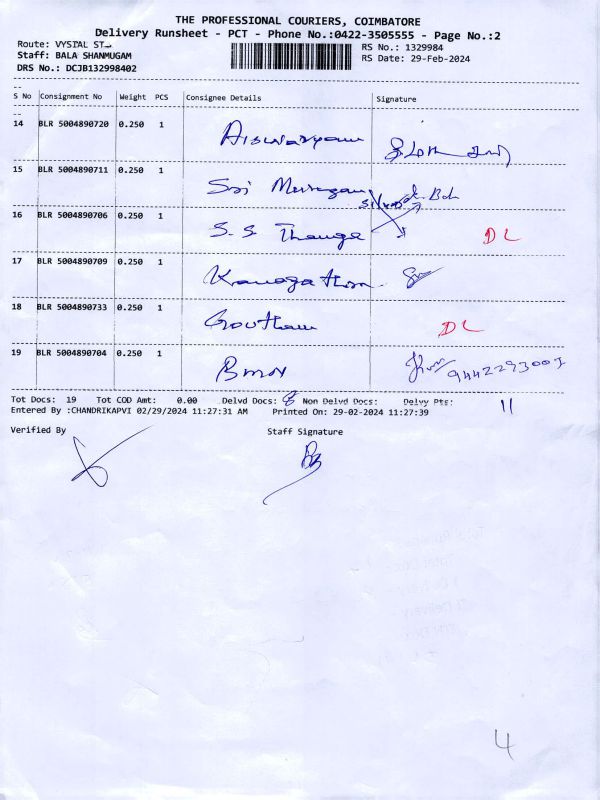 THE PROFESSIONAL COURIERS, COIMBATORE
Delivery Runsheet - PCT - Phone No.:0422-3505555 - Page No.:2
Route: VYSIAL ST
RS No.: 1329984
Staff: BALA SHANMUGAM
RS Date: 29-Feb-2024
DRS No.: DCJB132998402
S No Consignment No Weight PCS Consignee Details Signature
14 BLR 5004890720 0.250 1 Aiswaryam
15 BLR 5004890711 0.250 1 Sri Murugan
16 BLR 5004890706 0.250 1 S.S. Thanga DL
17 BLR 5004890709 0.250 1
18 BLR 5004890733 0.250 1 Goutham DL
19 BLR 5004890704 0.250 1 9442293007
Tot Docs: 19 Tot COD Amt: 0.00 Delvd Docs: 8 Non Delvd Docs: Delvy Pts: 11
Entered By :CHANDRIKAPVI 02/29/2024 11:27:31 AM Printed On: 29-02-2024 11:27:39
Verified By Staff Signature
4